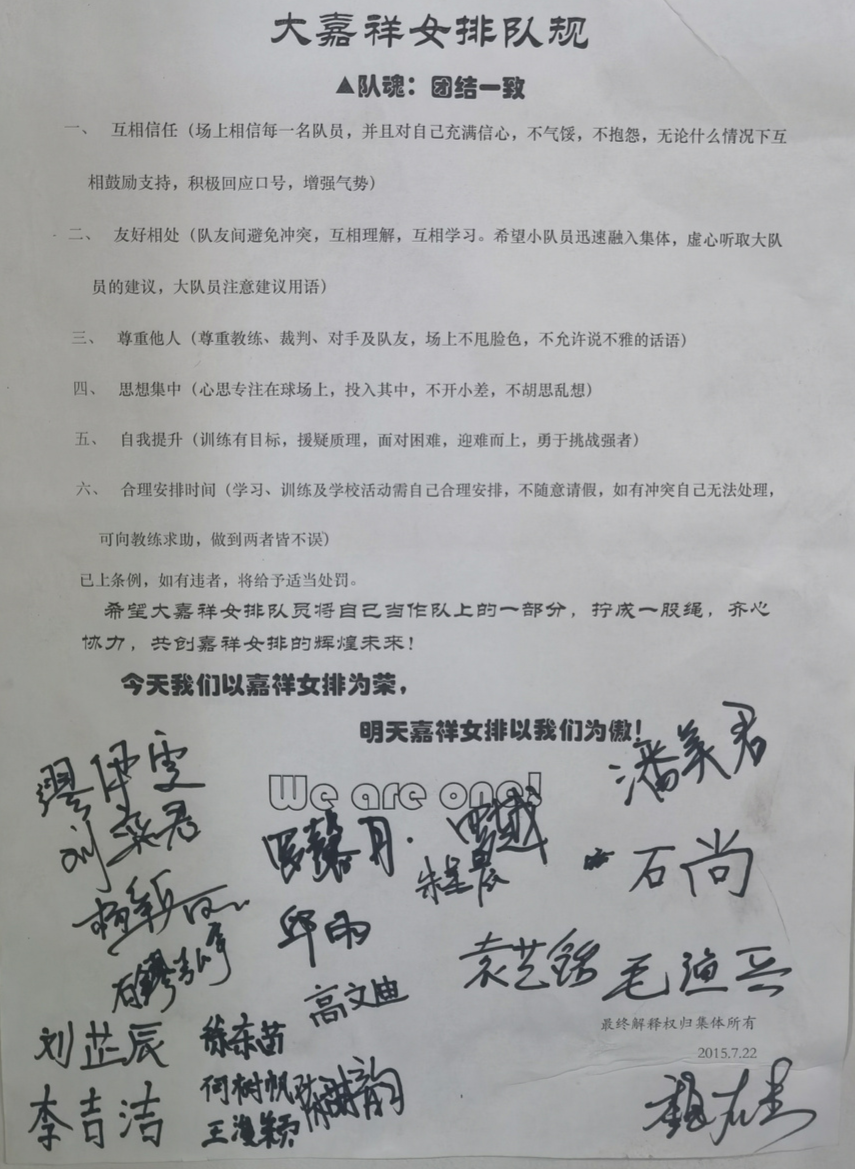 大嘉祥女排队规
▲队魂：团结一致
一、 互相信任（场上相信每一名队员，并且对自己充满信心，不气馁，不抱怨，无论什么情况下互
相鼓励支持，积极回应口号，增强气势）
二、 友好相处（队友间避免冲突，互相理解，互相学习。希望小队员迅速融入集体，虚心听取大队
员的建议，大队员注意建议用语）
三、 尊重他人（尊重教练、裁判、对手及队友，场上不甩脸色，不允许说不雅的话语）
四、 思想集中（心思专注在球场上，投入其中，不开小差，不胡思乱想）
五、 自我提升（训练有目标，援疑质理，面对困难，迎难而上，勇于挑战强者）
六、 合理安排时间（学习、训练及学校活动需自己合理安排，不随意请假，如有冲突自己无法处理，
可向教练求助，做到两者皆不误）
已上条例，如有违者，将给予适当处罚。
希望大嘉祥女排队员将自己当作队上的一部分，拧成一股绳，齐心
协力，共创嘉祥女排的辉煌未来！
今天我们以嘉祥女排为荣，
明天嘉祥女排以我们为傲！
潘美君
缪伊雯
We are one!
刘奕君
罗馨月
罗越
石尚
邱雨
高文迪
毛渔兵
最终解释权归集体所有
2015.7.22
刘芷辰
徐东苗
李吉洁
何树帆